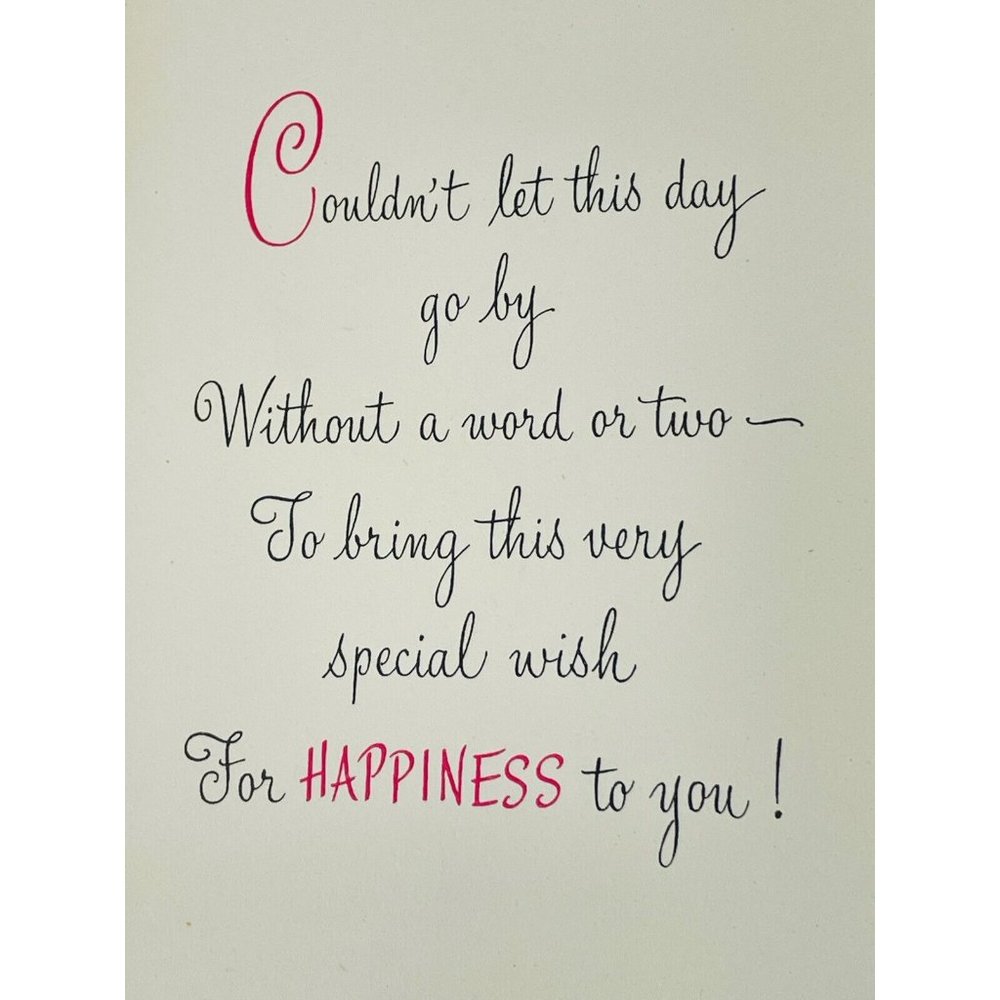 Couldn't let this day
go by
Without a word or two —
To bring this very
special wish
For HAPPINESS to you !